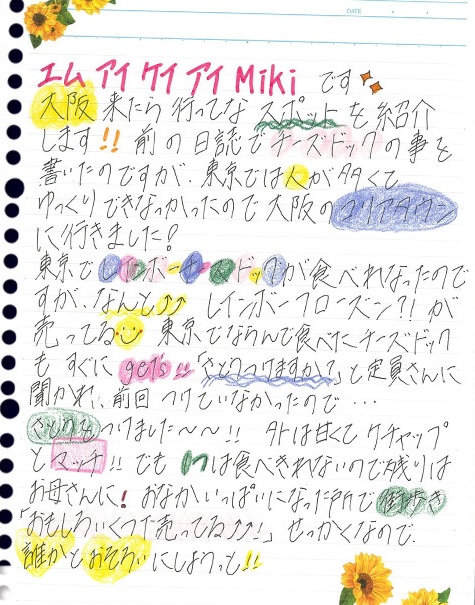 DATE
エム アイ ケイ アイ Miki です
大阪 来たら 行ってな スポットを 紹介
します!! 前の日誌でチーズドックの事を
書いたのですが、東京では人が多くて
ゆっくりできなっかったので大阪のコリアタウン
に行きました?
東京でレインボーチーズドックが食べれなったので
すが、なんと↑↑ レインボーフローズン?!が
売ってる 東京でならんで食べたチーズドック
も すぐに get's!! 「さとうつけますか?」と定員さんに
聞かれ、前回 つけていなかったので…
さとうをつけました〜〜!! 外は甘くてケチャップ
とマッチ!! でも は食べきれないので残りは
お母さんに! おなかいっぱいになった所で街歩き
「おもしろいくつ下売ってる↑↑!」せっかくなので、
誰かとおそろいにしようっと!!